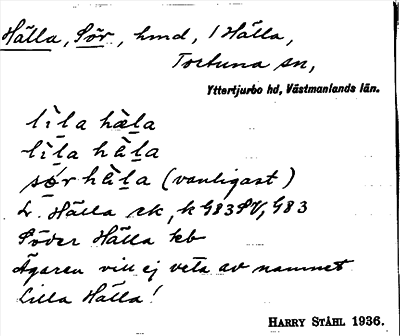 Hälla, Sör, hmd, / Hälla,
Tortuna sn,
Yttertjurbo hd, Västmanlands län.
lìla hæla
lìla hàla
sør hàla (vanligast)
L. Hälla ek, k G83SV, G83
Söder Hälla kb
Ägaren vill ej veta av namnet
Lilla Hälla!
HARRY STÅHL 1936.